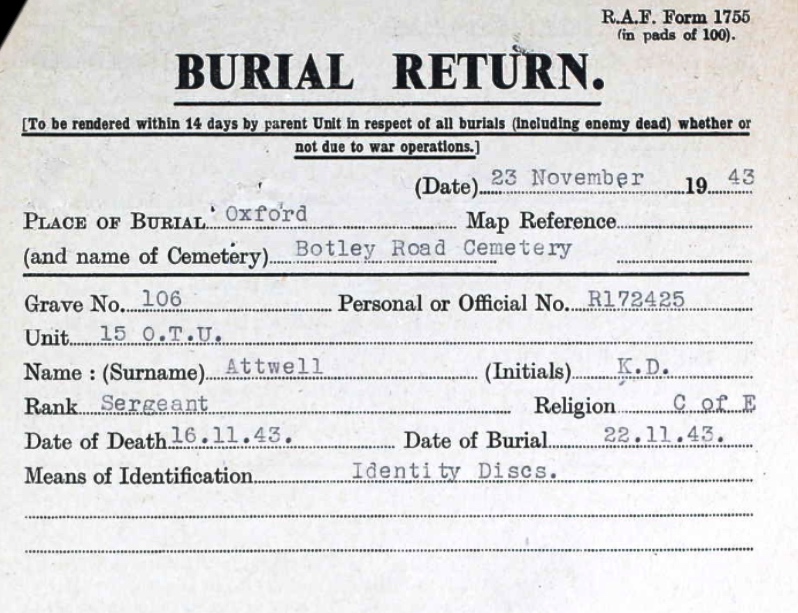 R.A.F. Form 1755
(in pads of 100).
BURIAL RETURN.
[To be rendered within 14 days by parent Unit in respect of all burials (including enemy dead) whether or
not due to war operations.]
(Date) 23 November 19 43
PLACE OF BURIAL Oxford Map Reference
(and name of Cemetery) Botley Road Cemetery
Grave No. 106 Personal or Official No. R172425
Unit 15 O.T.U.
Name : (Surname) Attwell (Initials) K.D.
Rank Sergeant Religion C of E
Date of Death 16.11.43. Date of Burial 22.11.43.
Means of Identification Identity Discs.